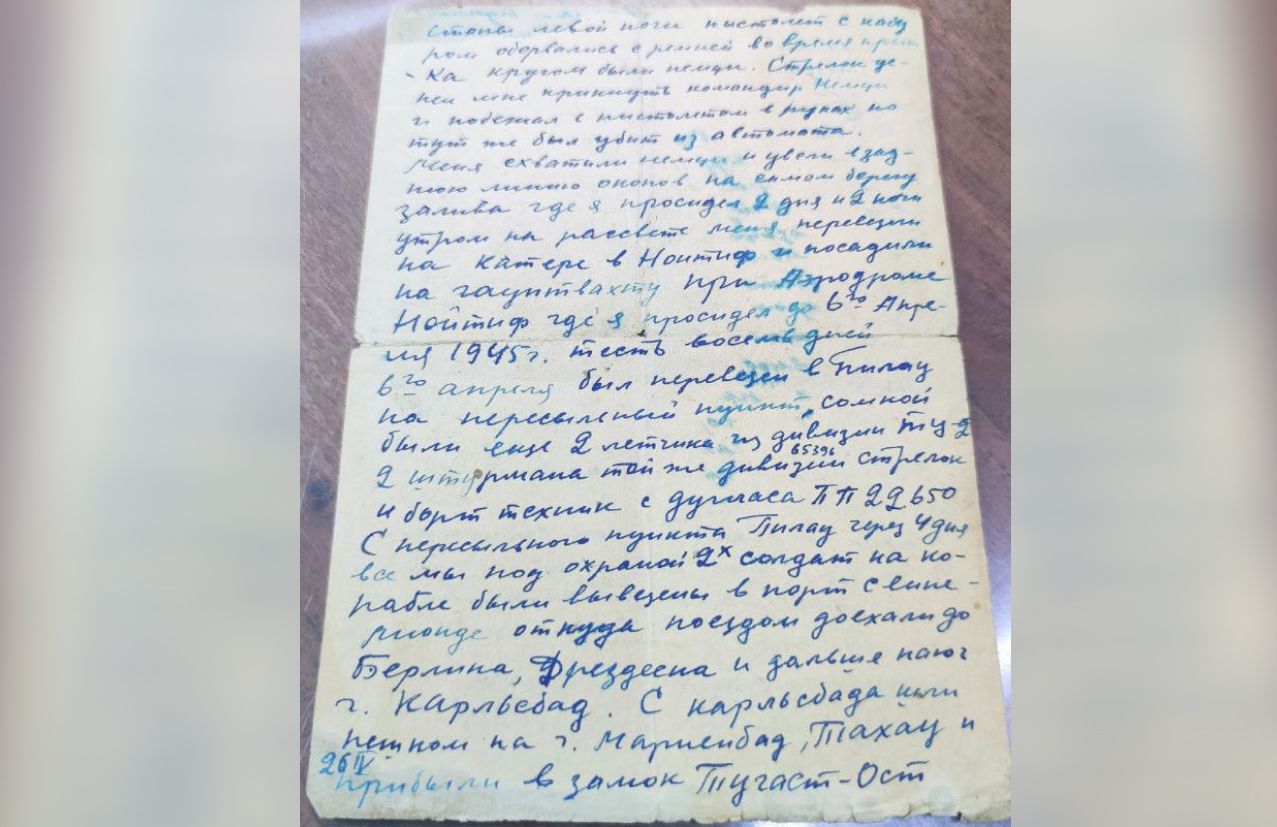 стопы левой ноги пистолет с кабу
ром оборвались с ремней во время прыж
ка кругом были немцы. Стрелок
мне крикнуть командир Немцы
и побежал с пистолетом в руках но
тут же был убит из автомата.
Меня схватили немцы и увели в зад-
нюю линию окопов на самом берегу
залива где я просидел 2 дня и 2 ночи
утром на рассвете меня перевезли
на катере в Нойтиф и посадили
на гауптвахту при Аэродроме
Нойтиф где я просидел до 6го Апре-
ля 1945г. тесть восемь дней
6го апреля был перевезен в Пилау
на пересыльный пункт, сомной
были еще 2 летчика из дивизии ТУ-2
65396
2 штурмана той же дивизии стрелок
и борт техник с дугласа ПП 29650
С пересыльного пункта Пилау через 4 дня
все мы под охраной 2х солдат на ко-
рабле были вывезены в порт Свине-
мюнде откуда поездом доехали до
Берлина, Дрездена и дальше на юг
г. Карльсбад. С карльсбада шли
пешком на г. Мариенбад, Тахау и
26 IV
прибыли в замок Тугаст-Ост